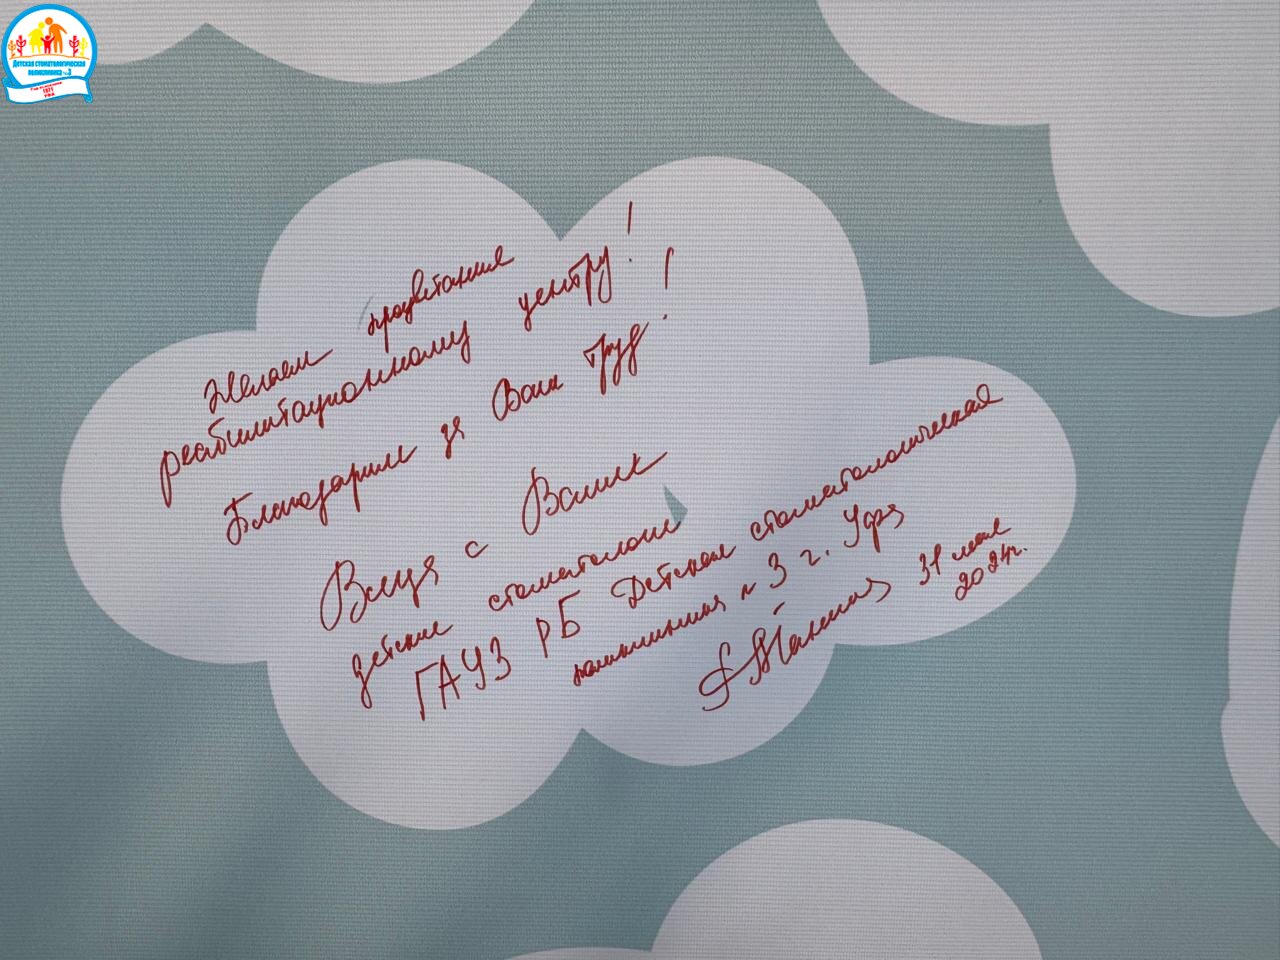 Детская стоматологическая
поликлиника №3
1971
УФА
Желаем процветания
реабилитационному центру!
Благодарим за Ваш труд!
Всегда с Вами
детские стоматологи
ГАУЗ РБ Детская стоматологическая
поликлиника № 3 г. Уфа
31 мая
2024г.